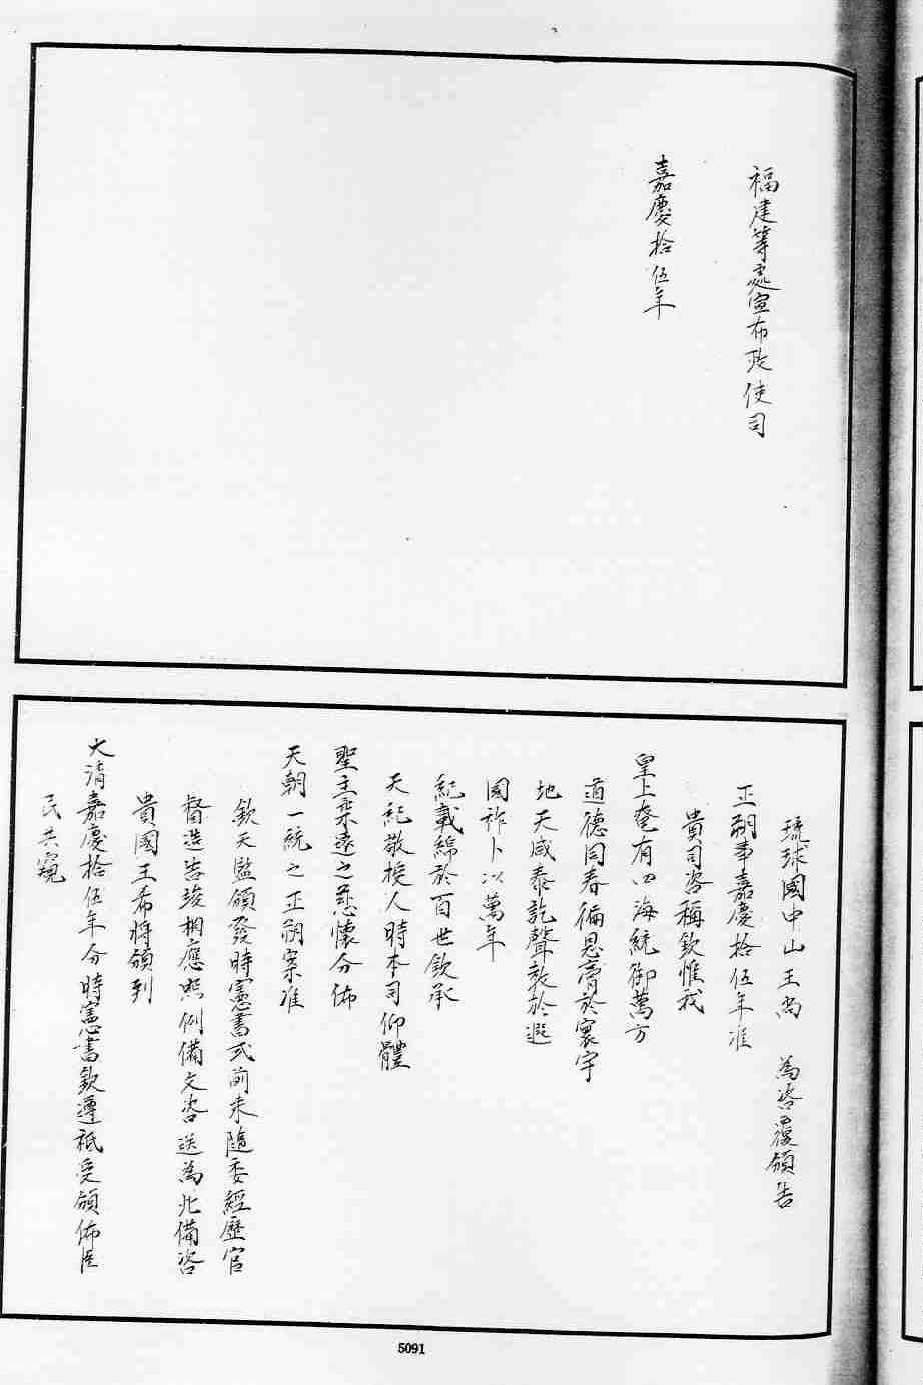 福建等處宣布政使司
嘉慶拾伍年
琉球國中山王尚 為咨覆頒告
正朔事嘉慶拾伍年准
貴司咨稱欽惟我
皇上奄有四海統御萬方
道德同春徧恩膏於寰宇
地天咸泰訖聲教於遐
國祚卜以萬年
紀載綿於百世欽承
天紀敬授人時本司仰體
聖主柔遠之慈懷分佈
天朝一統之正朔案准
欽天監頒發時憲書式前来隨委經歷官
督造告竣相應照例備文咨送為此備咨
貴國王希將頒到
大清嘉慶拾伍年分時憲書欽遵祗受頒佈臣
民共窺
5091